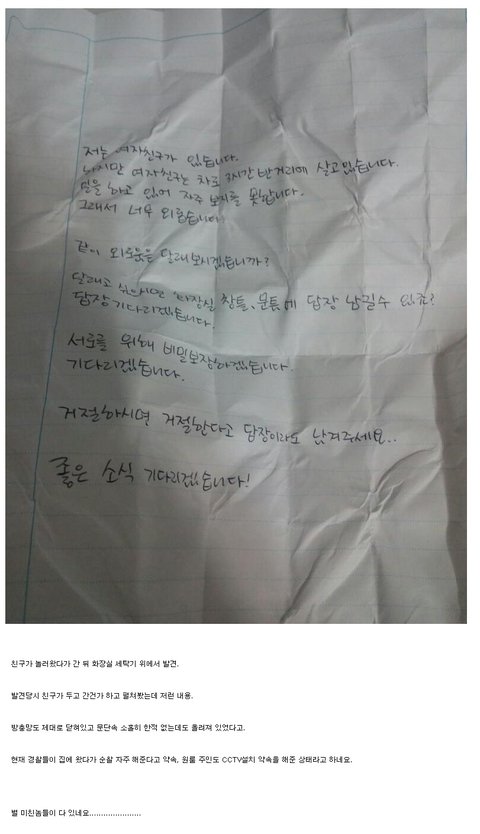 저는 여자친구가 있습니다.
하지만 여자친구는 차로 3시간 반거리에 살고있습니다.
일을 하고 있어 자주 보지를 못합니다.
그래서 너무 외롭습니다
같이 외로움을 달래보시겠습니까?
달래고 싶으시면 화장실 창틀, 문틈에 답장 남길수 있죠?
답장기다리겠습니다.
서로를 위해 비밀보장하겠습니다.
기다리겠습니다.
거절하시면 거절한다고 답장이라도 남겨주세요..
좋은 소식 기다리겠습니다!
친구가 놀러왔다가 간 뒤 화장실 세탁기 위에서 발견.
발견당시 친구가 두고 간건가 하고 펼쳐봤는데 저런 내용.
방충망도 제대로 닫혀있고 문단속 소홀히 한적 없는데도 올려져 있었다고.
현재 경찰들이 집에 왔다가 순찰 자주 해준다고 약속, 원룸 주인도 CCTV설치 약속을 해준 상태라고 하네요.
별 미친놈들이 다 있네요......................